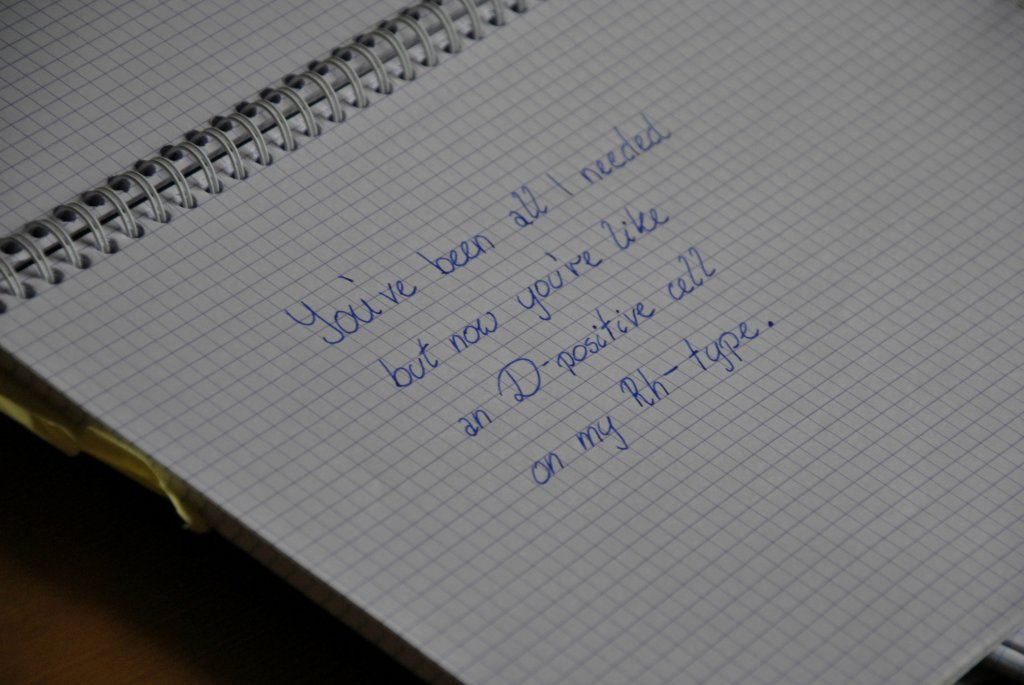 You've been all I needed
but now you're like
an D-positive cell
on my Rh-type.